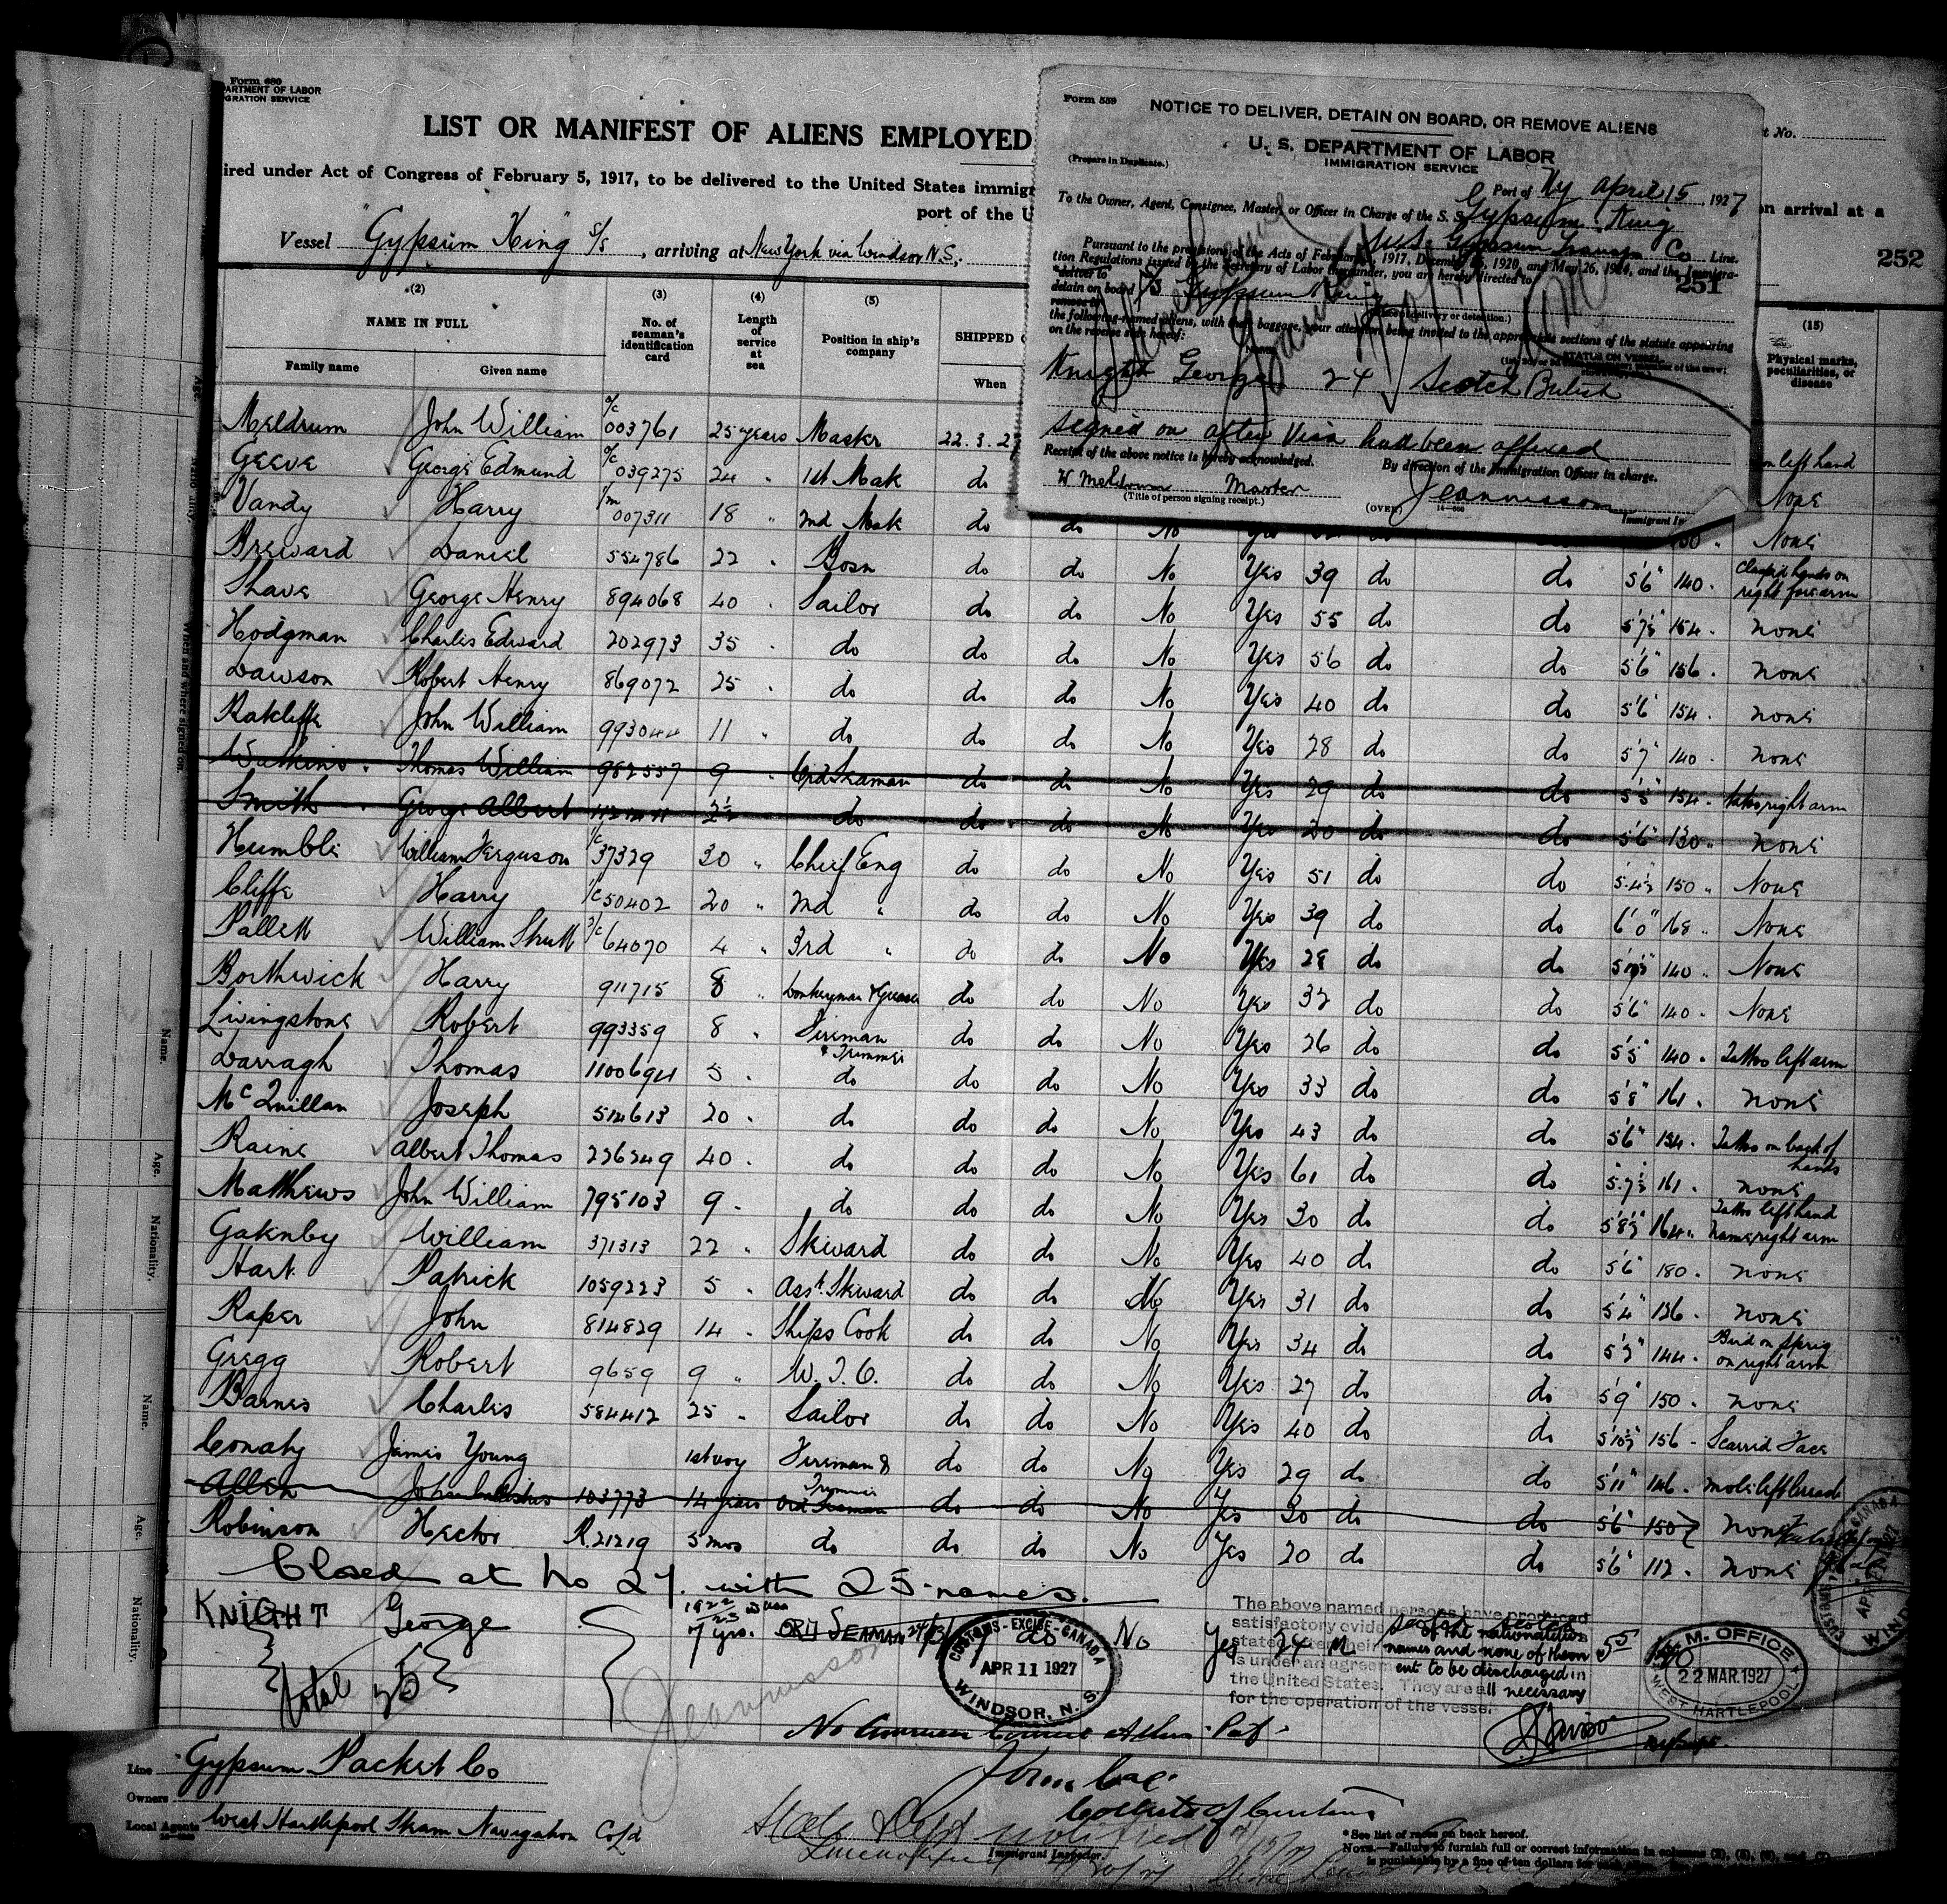 Form 680
DEPARTMENT OF LABOR
IMMIGRATION SERVICE
LIST OR MANIFEST OF ALIENS EMPLOYED
ired under Act of Congress of February 5, 1917, to be delivered to the United States immigr
on arrival at a
port of the U
t No.
252
Vessel "Gypsum King" S/S, arriving at New York via Windsor N.S.
Form 559
NOTICE TO DELIVER, DETAIN ON BOARD, OR REMOVE ALIENS
(Prepare in Duplicate.)
U. S. DEPARTMENT OF LABOR
IMMIGRATION SERVICE
Port of Ny April 15, 1927
To the Owner, Agent, Consignee, Master, or Officer in Charge of the S. S. Gypsum King
Gypsum Co Line.
Pursuant to the provisions of the Acts of February 5, 1917, December 26, 1920, and May 26, 1924, and the Immigra-
tion Regulations issued by the Secretary of Labor thereunder, you are hereby directed to
deliver to
detain on board Gypsum King
remove to
251
(Place of delivery or detention.)
the following-named aliens, with their baggage, your attention being invited to the appropriate sections of the statute appearing
on the reverse side hereof:
STATUS ON VESSEL
Knight George 24 Scotch British
Signed on after Visa had been affixed
Receipt of the above notice is hereby acknowledged.
By direction of the Immigration Officer in charge.
W Meldrum Master
(Title of person signing receipt.)
(OVER)
14—666
Immigrant In
(2) (3) (4) (5) (15)
NAME IN FULL
Family name Given name
No. of seaman's identification card
Length of service at sea
Position in ship's company
SHIPPED
When
Physical marks, peculiarities, or disease
Meldrum John William o/c 003761 25 years Master 22.3.2 on left hand
Geeve George Edmund o/c 039275 24 " 1st Mate do None
Vandy Harry 007311 18 " 2nd Mate do do No do None
Breward Daniel 554786 22 " Bosn do do No Yes 39 do do 5'6" 140 " Clasped hands on right forearm
Shave George Henry 894068 40 " Sailor do do No Yes 55 do do 5'7½ 154 " none
Hodgman Charles Edward 202973 35 " do do do No Yes 56 do do 5'6" 156 " none
Dawson Robert Henry 869072 25 " do do do No Yes 40 do do 5'6" 154 " none
Ratcliffe John William 993044 11 " do do do No Yes 28 do do 5'7" 140 " none
Watkins Thomas William 982557 9 " Ord Seaman do do No Yes 29 do do 5'5" 154 " tattoo right arm
Smith George Albert 2½ do do do No Yes 20 do do 5'6" 130 " none
Humble William Ferguson 1/c 37329 30 " Chief Eng do do No Yes 51 do do 5'4½ 150 " None
Cliffe Harry 50402 20 " 2nd " do do No Yes 39 do do 6'0" 168 " None
Pallett William Shutt 64070 4 " 3rd " do do No Yes 28 do do 140 " None
Borthwick Harry 911715 8 " Donkeyman & Greaser do do No Yes 32 do do 5'6" 140 " None
Livingstone Robert 993359 8 " Fireman & Trimmer do do No Yes 26 do do 5'5" 140 " Tattoo left arm
Darragh Thomas 5 " do do do No Yes 33 do do 5'8" 161 " none
McQuillan Joseph 514613 20 " do do do No Yes 43 do do 5'6" 154 " Tattoo on back of hands
Raine Albert Thomas 226249 40 " do do do No Yes 61 do do 5'7½ 161 " none
Matthews John William 795103 9 " do do do No Yes 30 do do 5'8½ 164 " Tattoo left hand Name right arm
Gatenby William 371313 22 " Steward do do No Yes 40 do do 5'6" 180 " none
Hart Patrick 1059223 5 " Asst. Steward do do No Yes 31 do do 5'4" 136 " none
Raper John 814829 14 " Ships Cook do do No Yes 34 do do 5'3" 144 " Bird on sprig on right arm
Gregg Robert 9659 9 " W.T.O. do do No Yes 27 do do 5'9" 150 " none
Barnes Charles 584412 25 " Sailor do do No Yes 40 do do 5'10½ 156 " Scarred Face
Conaty James Young 1st voy Fireman & Trimmer do do No Yes 29 do do 5'11" 146 " mole left breast
Allen John 103773 14 years Ord Seaman do do No Yes 30 do do 5'6" 150 none
Robinson Hector R.21219 5 mos do do do No Yes 20 do do 5'6" 112 " none
Closed at No 27. with 25 names.
KNIGHT George 7 yrs. ORD SEAMAN do No Yes 24 M 5'5"
Total 26
The above named persons have produced
satisfactory evidence of the nationalities
stated after their names and none of them
is under an agreement to be discharged in
the United States. They are all necessary
for the operation of the vessel.
CUSTOMS - EXCISE - CANADA
APR 11 1927
WINDSOR, N. S.
M. M. OFFICE
22 MAR. 1927
WEST HARTLEPOOL
No American Consul at this Port
Collector of Customs
Line Gypsum Packet Co
Owners
Local Agents West Hartlepool Steam Navigation Co Ld
State Dept notified
Immigrant Inspector.
*See list of races on back hereof.
NOTE.—Failure to furnish full or correct information in columns (2), (5), (6), and (7)
is punishable by a fine of ten dollars for each
When and where signed on.
Name.
Age.
Nationality.
Name.
Age.
Nationality.